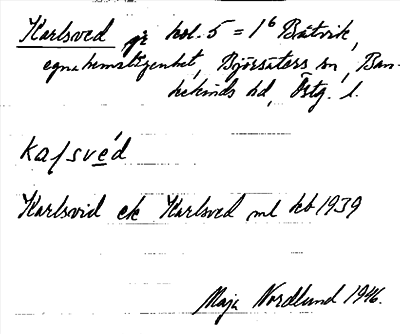 Karlsved på kol. 5 = 1⁶ Båtvik,
egna hemslägenhet, Björsäters sn, Ban-
kekinds hd, Östg. l.
kaſsvéd
Karlsvid ek Karlsved ml kb 1939
Maja Nordlund 1946.